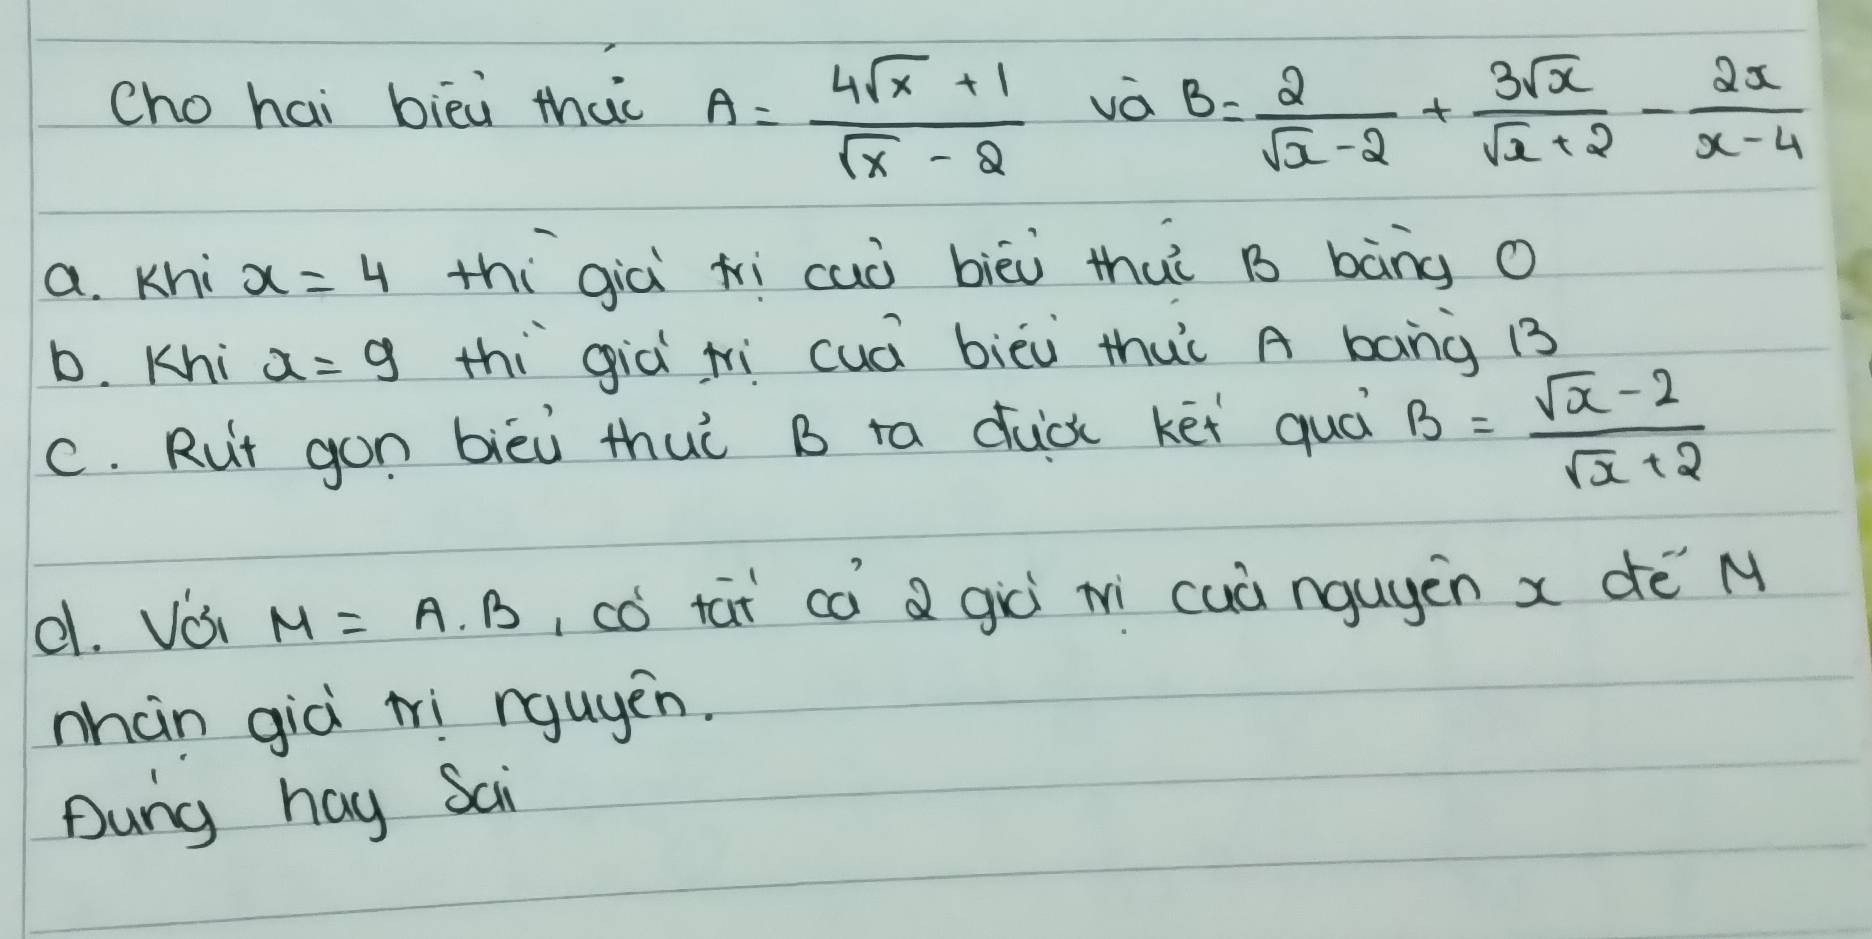 Cho hai biểu thức A = (4√x + 1)/(√x - 2) và B = 2/(√x - 2) + 3√x/(√x + 2) - 2x/(x - 4)
a. Khi x = 4 thì giá trị của biểu thức B bằng 0
b. Khi x = 9 thì giá trị của biểu thức A bằng 13
c. Rút gọn biểu thức B ta được kết quả B = (√x - 2)/(√x + 2)
d. Với M = A.B, có tất cả 2 giá trị của nguyên x để M
nhận giá trị nguyên.
Đúng hay Sai